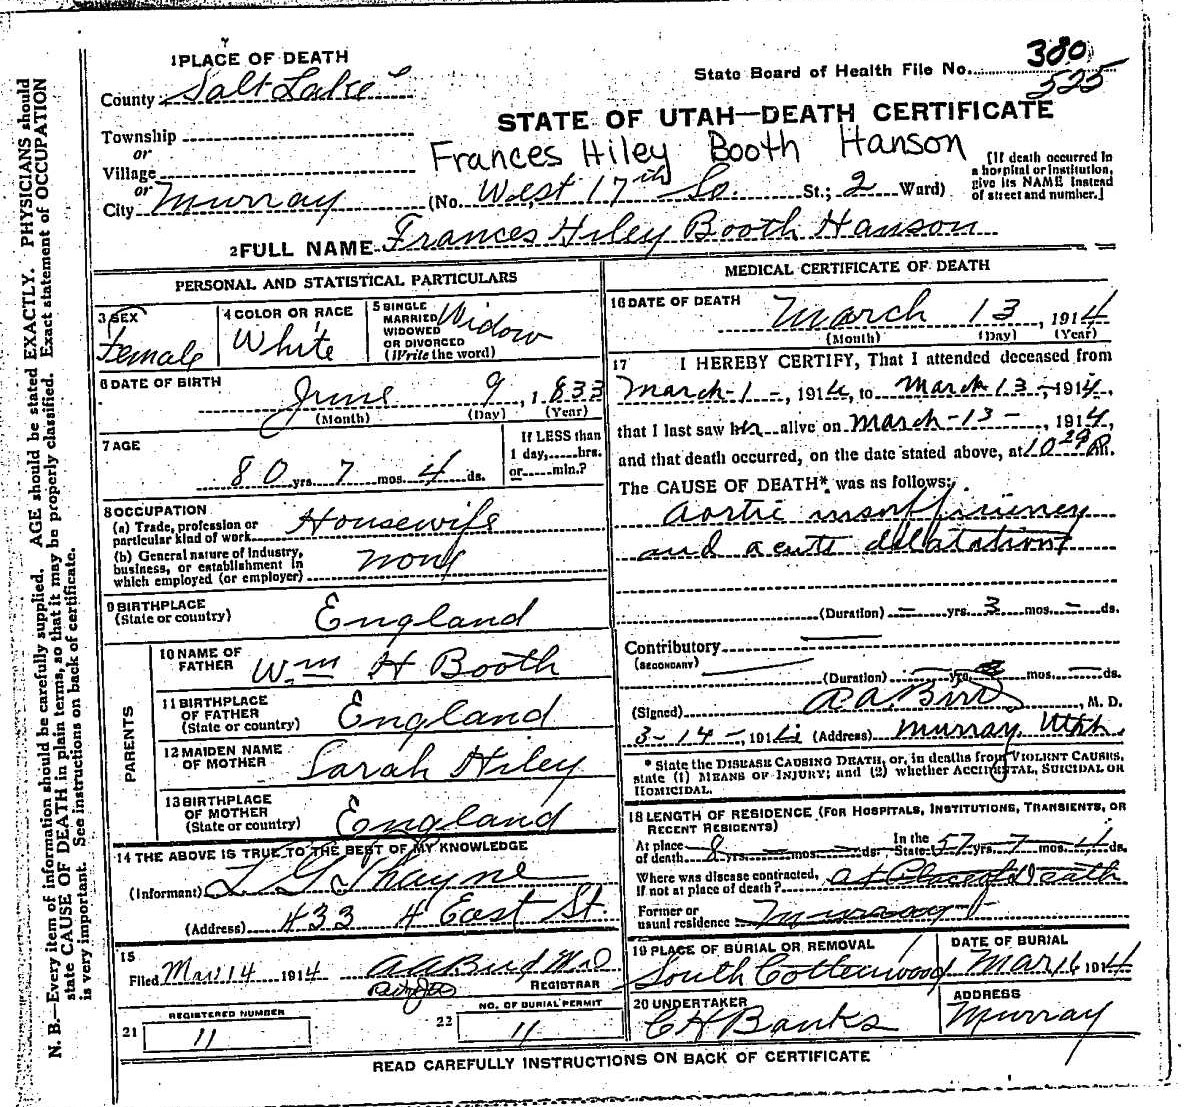 1 PLACE OF DEATH
County Salt Lake
Township
or
Village
or
City Murray
State Board of Health File No. 380
525
STATE OF UTAH—DEATH CERTIFICATE
Frances Hiley Booth Hanson
(No. West 17th So. St.; 2 Ward)
[If death occurred in a hospital or institution, give its NAME instead of street and number.]
2 FULL NAME Frances Hiley Booth Hanson
PERSONAL AND STATISTICAL PARTICULARS
3 SEX Female
4 COLOR OR RACE White
5 SINGLE MARRIED WIDOWED OR DIVORCED (Write the word) Widow
6 DATE OF BIRTH
June 9, 1833
(Month) (Day) (Year)
7 AGE
80 yrs. 7 mos. 4 ds.
If LESS than 1 day, hrs. or min.?
8 OCCUPATION
(a) Trade, profession or particular kind of work Housewife
(b) General nature of industry, business, or establishment in which employed (or employer) none
9 BIRTHPLACE (State or country) England
PARENTS
10 NAME OF FATHER Wm H Booth
11 BIRTHPLACE OF FATHER (State or country) England
12 MAIDEN NAME OF MOTHER Sarah Hiley
13 BIRTHPLACE OF MOTHER (State or country) England
14 THE ABOVE IS TRUE TO THE BEST OF MY KNOWLEDGE
(Informant) L G Thayne
(Address) 433 4 East St.
15
Filed Mar 14 1914 A A Bird M D
REGISTRAR
21 REGISTERED NUMBER 11
22 NO. OF BURIAL PERMIT 11
MEDICAL CERTIFICATE OF DEATH
16 DATE OF DEATH
March 13, 1914
(Month) (Day) (Year)
17 I HEREBY CERTIFY, That I attended deceased from
March-1-, 1914, to March 13-, 1914,
that I last saw her alive on March-13-, 1914,
and that death occurred, on the date stated above, at 10 P.m.
The CAUSE OF DEATH* was as follows:
Aortic insufficiency
and acute dilatation
(Duration) — yrs. 3 mos. — ds.
Contributory
(SECONDARY)
(Duration) yrs. mos. — ds.
(Signed) A. A. Bird, M. D.
3-14-, 1914 (Address) Murray, Utah.
* State the DISEASE CAUSING DEATH, or, in deaths from VIOLENT CAUSES, state (1) MEANS OF INJURY; and (2) whether ACCIDENTAL, SUICIDAL OR HOMICIDAL.
18 LENGTH OF RESIDENCE (FOR HOSPITALS, INSTITUTIONS, TRANSIENTS, OR RECENT RESIDENTS)
At place of death 8 yrs. — mos. — ds. In the State 57 yrs. 7 mos. 4 ds.
Where was disease contracted, If not at place of death? At Place of Death
Former or usual residence Murray
19 PLACE OF BURIAL OR REMOVAL South Cottonwood
DATE OF BURIAL Mar 16 1914
20 UNDERTAKER C H Banks
ADDRESS Murray
READ CAREFULLY INSTRUCTIONS ON BACK OF CERTIFICATE
N. B.—Every item of information should be carefully supplied. AGE should be stated EXACTLY. PHYSICIANS should
state CAUSE OF DEATH in plain terms, so that it may be properly classified. Exact statement of OCCUPATION
is very important. See instructions on back of certificate.